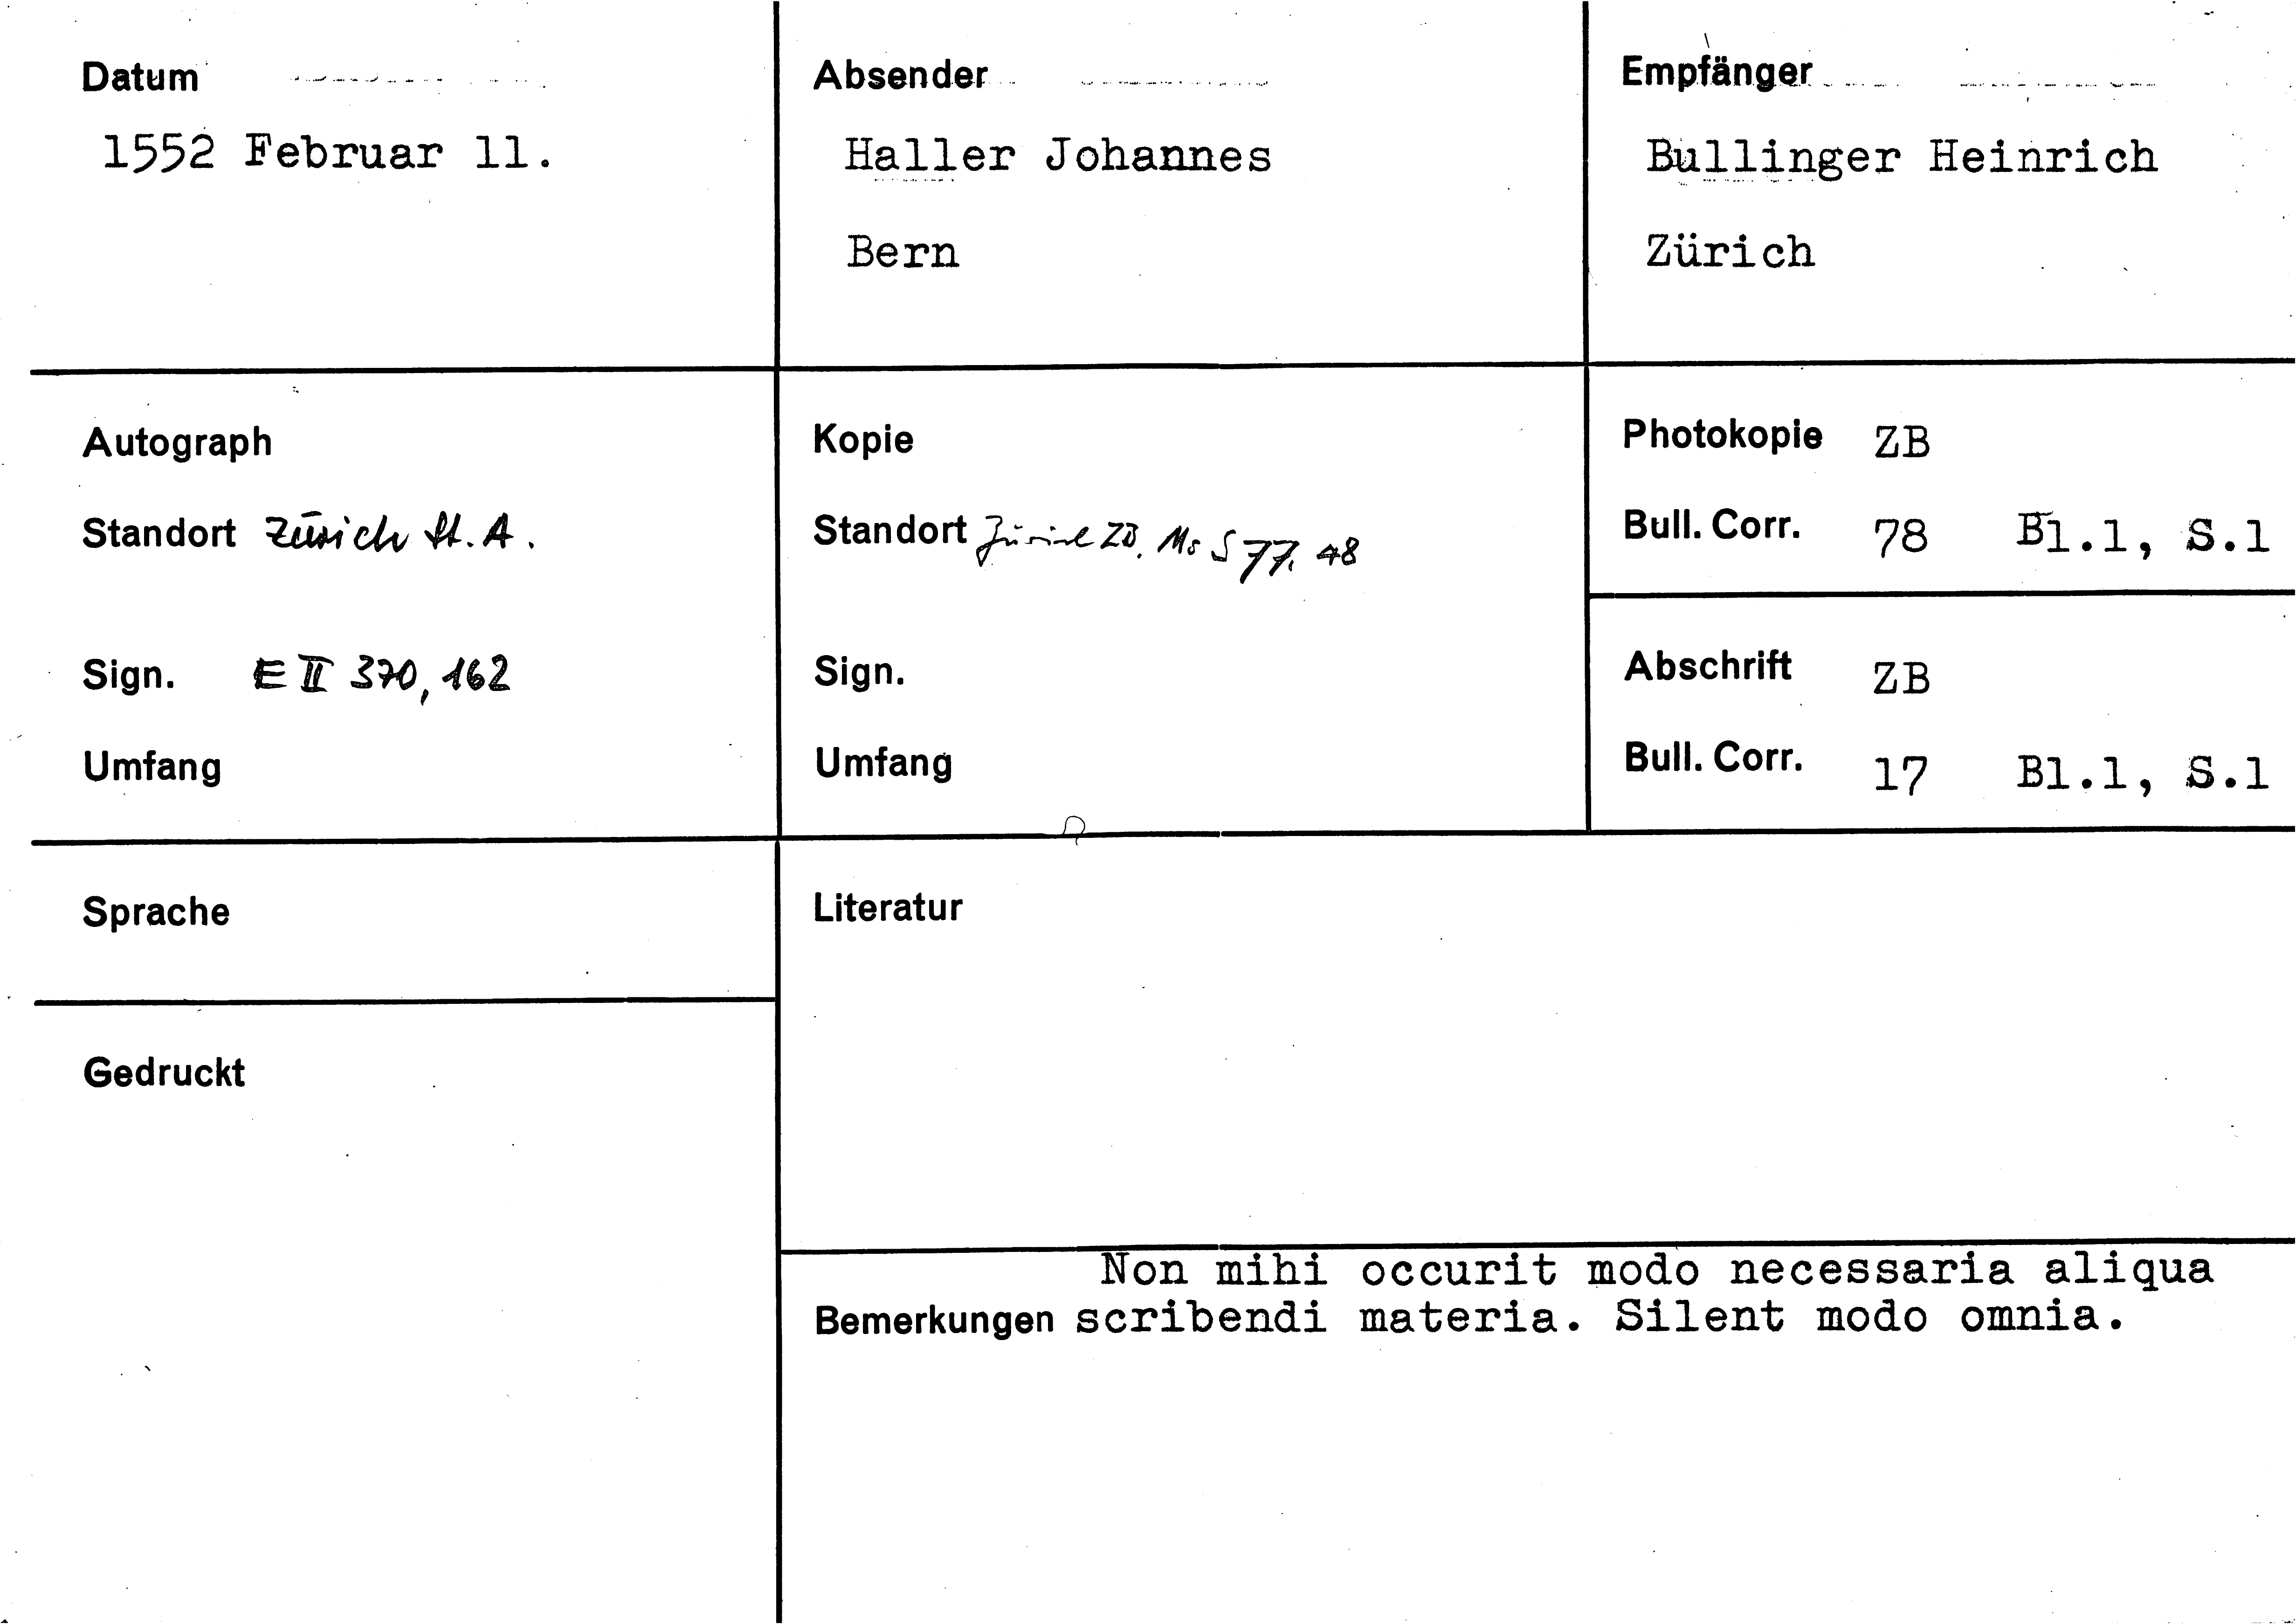 Datum
1552 Februar 11.
Absender
Haller Johannes
Bern
Empfänger
Bullinger Heinrich
Zürich
Autograph
Standort Zürich St. A.
Sign. E II 370, 162
Umfang
Kopie
Standort Zürich ZB. Ms S 77, 48
Sign.
Umfang
Photokopie ZB
Bull. Corr. 78 Bl.1, S.1
Abschrift ZB
Bull. Corr. 17 Bl.1, S.1
Sprache
Gedruckt
Literatur
Non mihi occurit modo necessaria aliqua
Bemerkungen scribendi materia. Silent modo omnia.